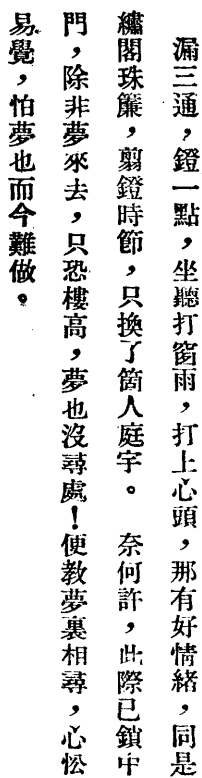 漏三通，鐙一點，坐聽打窗雨，打上心頭，那有好情緒，同是
繡閣珠簾，翦鐙時節，只換了箇人庭宇。　奈何許，此際已鎖中
門，除非夢來去，只恐樓高，夢也沒尋處！便教夢裏相尋，心忪
易覺，怕夢也而今難做。